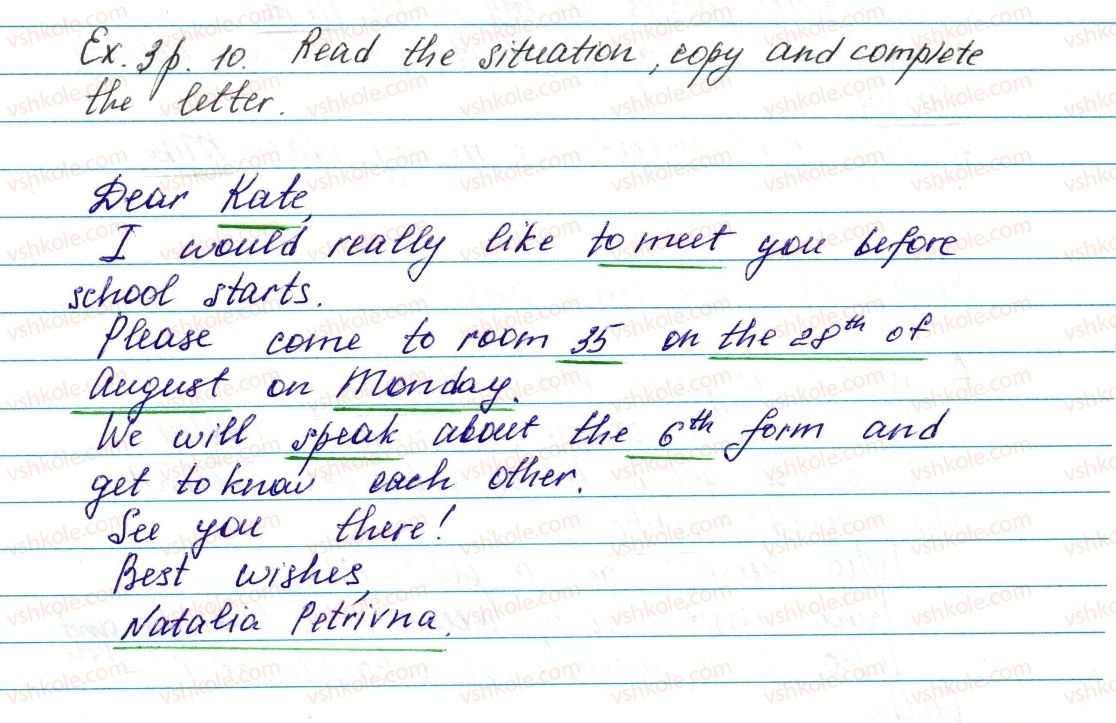 Ex. 3 p. 10. Read the situation, copy and complete
the letter.
Dear Kate,
I would really like to meet you before
school starts.
Please come to room 35 on the 28th of
August on Monday.
We will speak about the 6th form and
get to know each other.
See you there!
Best wishes,
Natalia Petrivna.